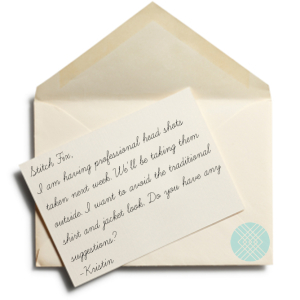 Stitch Fix,
I am having professional head shots
taken next week. We'll be taking them
outside. I want to avoid the traditional
shirt and jacket look. Do you have any
suggestions?
-Kristin